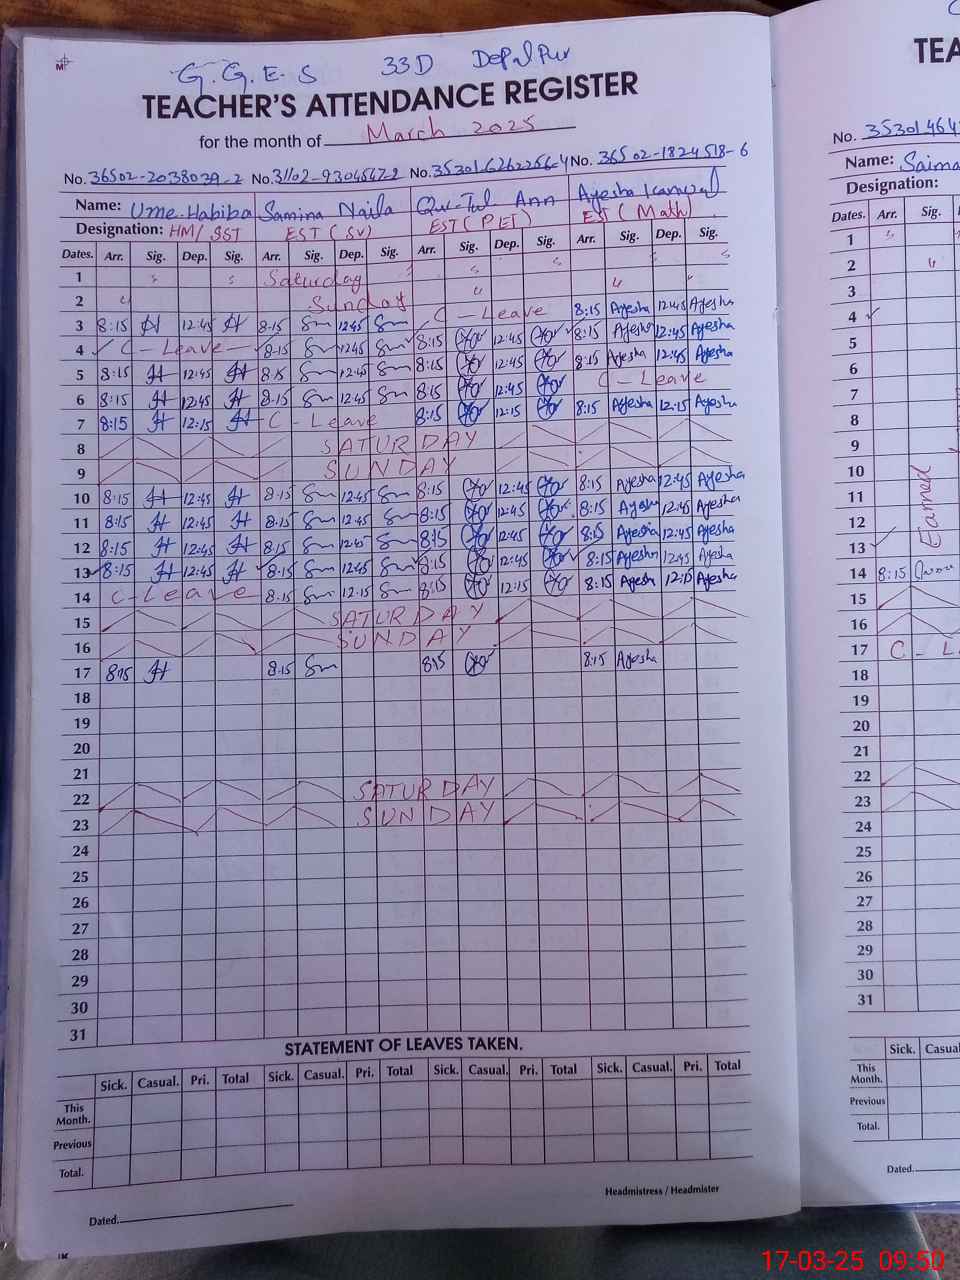 G.G.E.S 33D DePalPur
TEACHER'S ATTENDANCE REGISTER
for the month of March 2025
No. 36502-2038039-2 No. 31102-9304567-2 No. 35301-6262256-4 No. 36502-1824518-6
Name: Ume-Habiba Samina Naila Qur-Tul Ann Ayesha Kanwal
Designation: HM/SST EST (SV) EST (PET) EST (Math)
Dates. Arr. Sig. Dep. Sig. Arr. Sig. Dep. Sig. Arr. Sig. Dep. Sig. Arr. Sig. Dep. Sig.
1 Saturday
2 Sunday
3 8:15 12:45 8-15 Sm 12:45 Sm C-Leave 8:15 Ayesha 12:45 Ayesha
4 C-Leave 8-15 Sm 12:45 Sm 8:15 12:45 8:15 Ayesha 12:45 Ayesha
5 8:15 12:45 8:15 Sm 12-45 Sm 8:15 12:45 8:15 Ayesha 12:45 Ayesha
6 8:15 12:45 8-15 Sm 12-45 Sm 8:15 12:45 C-Leave
7 8:15 12:15 C-Leave 8:15 12:15 8:15 Ayesha 12:15 Ayesha
8 SATURDAY
9 SUNDAY
10 8:15 12:45 8-15 Sm 12:45 Sm 8:15 12:45 8:15 Ayesha 12:45 Ayesha
11 8:15 12:45 8:15 Sm 12-45 Sm 8:15 12:45 8:15 Ayesha 12:45 Ayesha
12 8:15 12:45 8:15 Sm 12:45 Sm 8:15 12:45 8:15 Ayesha 12:45 Ayesha
13 8:15 12:45 8:15 Sm 12:45 Sm 8:15 12:45 8:15 Ayesha 12:45 Ayesha
14 C-Leave 8:15 Sm 12-15 Sm 8:15 12:15 8:15 Ayesha 12:15 Ayesha
15 SATURDAY
16 SUNDAY
17 8:15 8:15 Sm 8:15 8:15 Ayesha
18
19
20
21
22 SATURDAY
23 SUNDAY
24
25
26
27
28
29
30
31
STATEMENT OF LEAVES TAKEN.
Sick. Casual. Pri. Total Sick. Casual. Pri. Total Sick. Casual. Pri. Total Sick. Casual. Pri. Total
This Month.
Previous
Total.
Headmistress / Headmister
Dated.
TEA
No. 3530146
Name: Saima
Designation:
Dates. Arr. Sig.
1
2
3
4
5
6
7
8
9
10
11
12
13
Earned
14 8:15
15
16
17 C - L
18
19
20
21
22
23
24
25
26
27
28
29
30
31
Sick. Casual
This Month.
Previous
Total.
Dated.
17-03-25 09:50